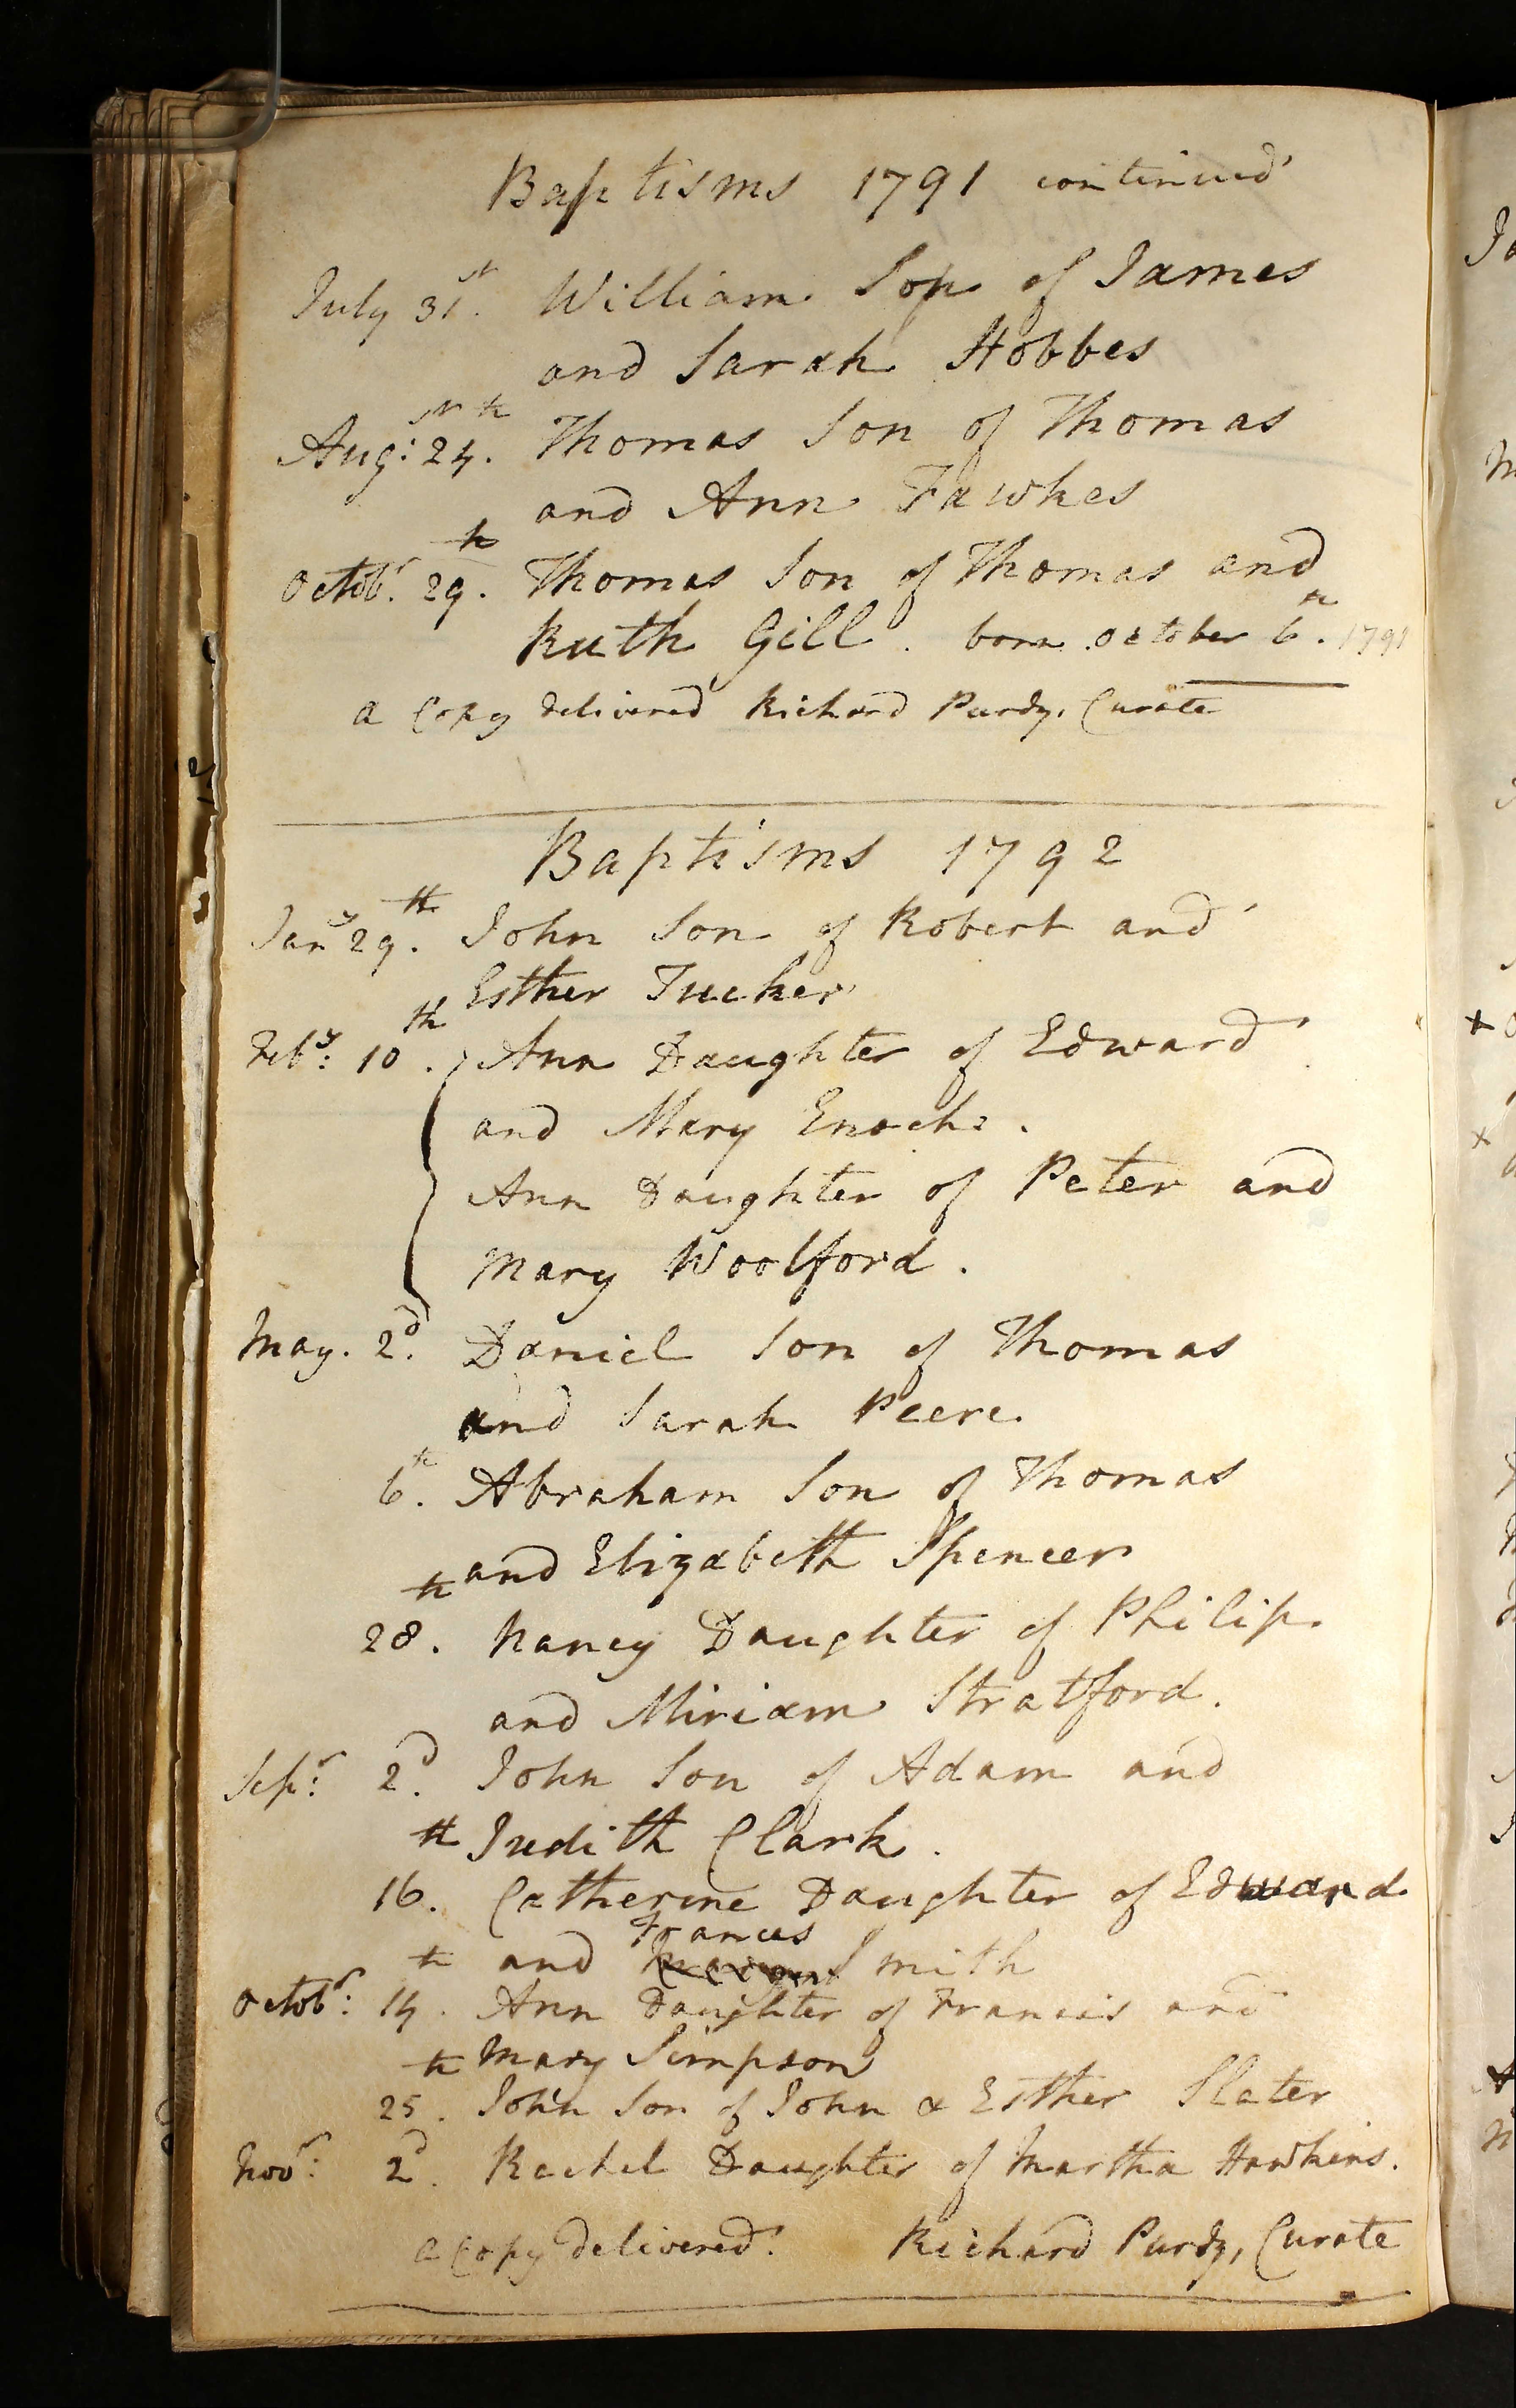 Baptisms 1791 continued
July 31st. William Son of James
and Sarah Hobbes
Augst: 24th. Thomas Son of Thomas
and Ann Fawkes
Octobr. 29th. Thomas Son of Thomas and
Ruth Gill. born October 6th. 1791
a Copy delivered Richard Purdy, Curate
Baptisms 1792
Jany 29th. John Son of Robert and
Esther Tucker
Feby: 10th. Ann Daughter of Edward
and Mary Enochs.
Ann Daughter of Peter and
Mary Woolford.
May. 2d. Daniel Son of Thomas
and Sarah Peere.
6th. Abraham Son of Thomas
and Elizabeth Spencer
28th. Nancy Daughter of Philip
and Miriam Stratford.
Sepr: 2d. John Son of Adam and
Judith Clark.
16th. Catherine Daughter of Edward
Frances
and Smith
Octobr: 14th. Ann Daughter of Francis and
Mary Simpson
25th. John Son of John & Esther Slater
Novr: 2d. Rachel Daughter of Martha Hawkins.
a Copy delivered. Richard Purdy, Curate